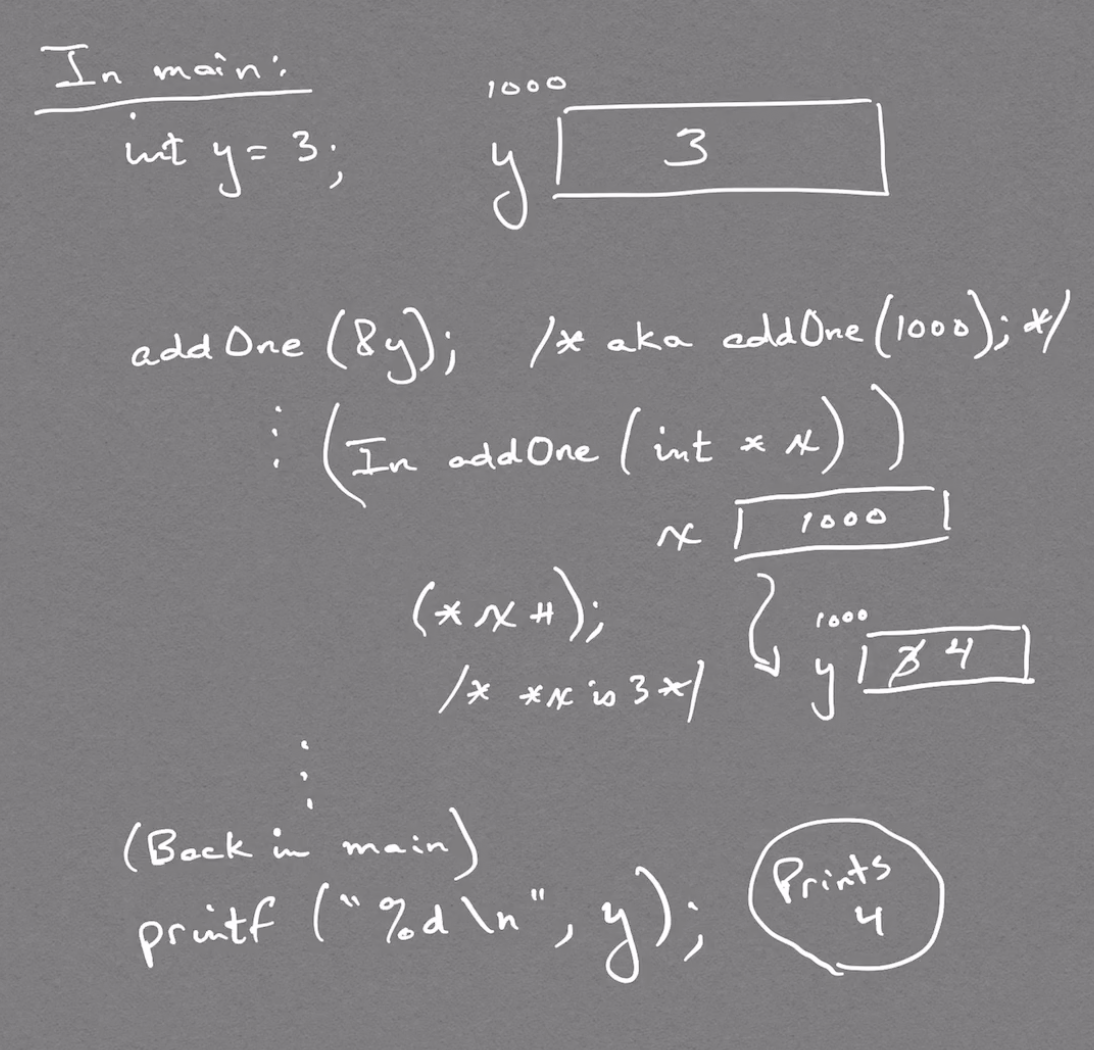 In main:
1000
int y = 3;
y 3
addOne (&y); /* aka addOne(1000); */
(In addOne (int * x))
x 1000
(*x++);
1000
y 3 4
/* *x is 3 */
(Back in main)
printf ("%d\n", y);
Prints
4